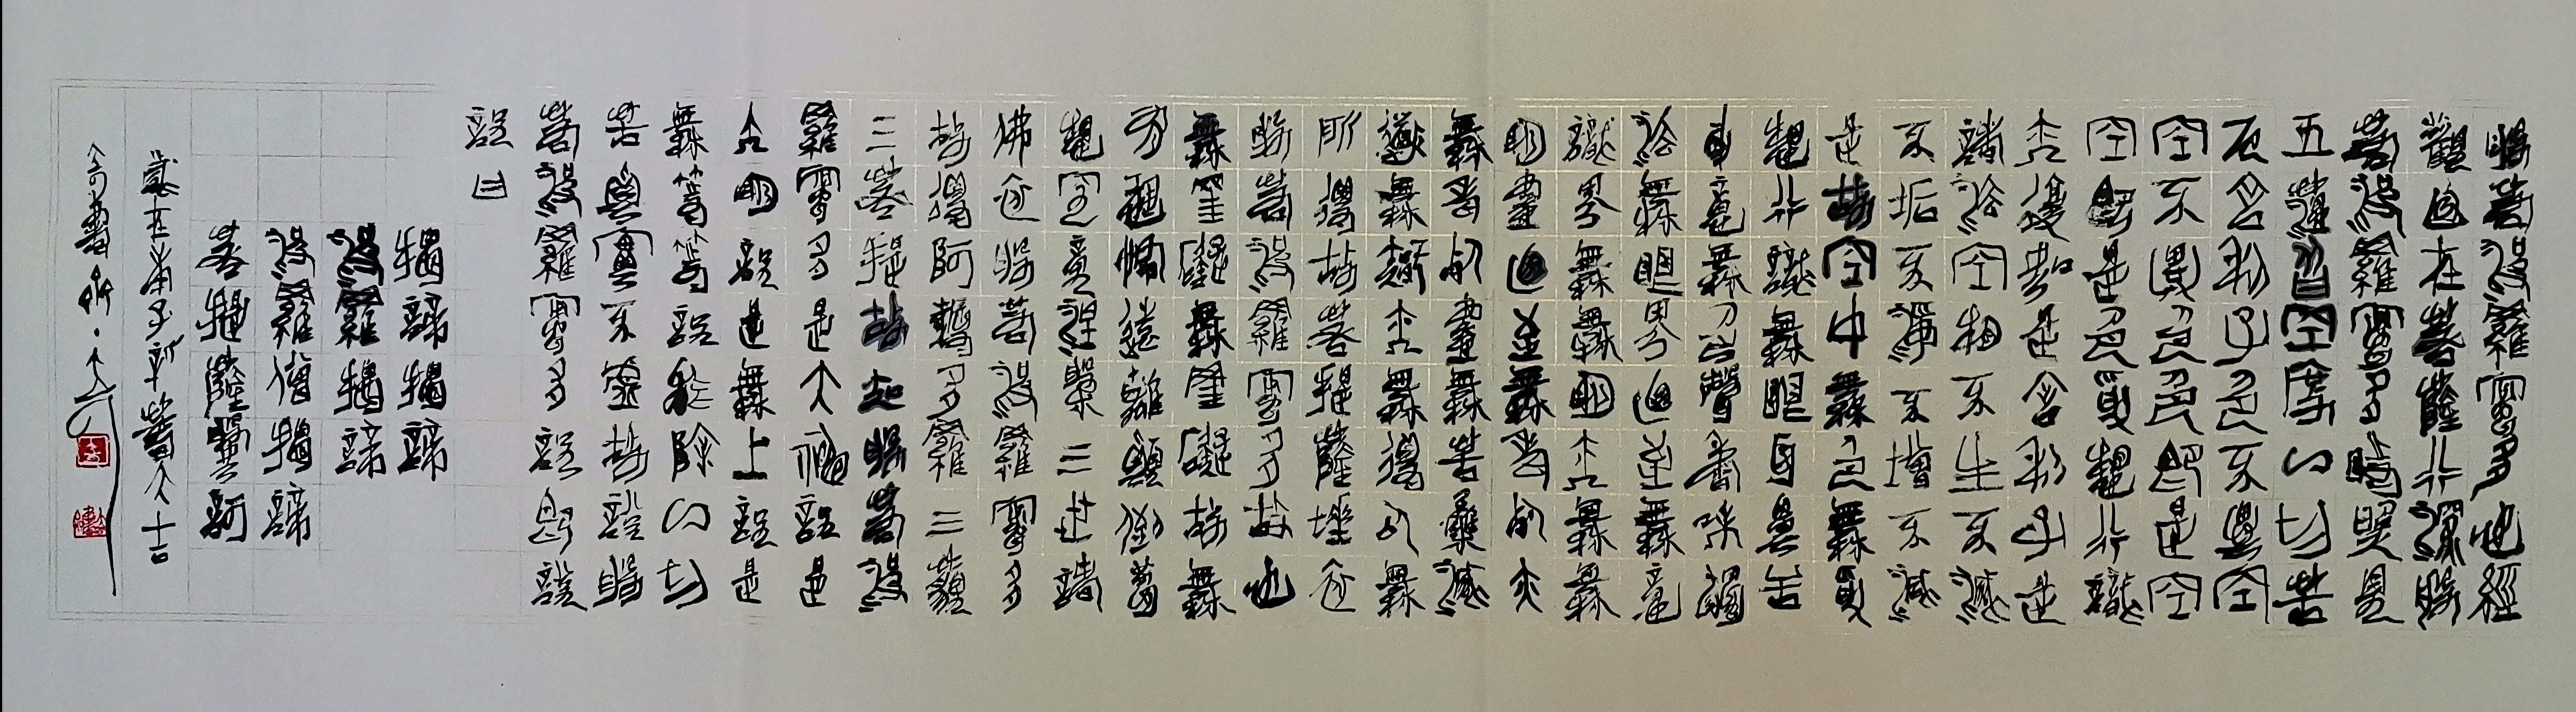 般若波羅蜜多心經
觀自在菩薩行深般
若波羅蜜多時照見
五蘊皆空度一切苦
厄舍利子色不異空
空不異色色即是空
空即是色受想行識
亦復如是舍利子是
諸法空相不生不滅
不垢不淨不增不減
是故空中無色無受
想行識無眼耳鼻舌
身意無色聲香味觸
法無眼界乃至無意
識界無無明亦無無
明盡乃至無老死亦
無老死盡無苦集滅
道無智亦無得以無
所得故菩提薩埵依
般若波羅蜜多故心
無罣礙無罣礙故無
有恐怖遠離顛倒夢
想究竟涅槃三世諸
佛依般若波羅蜜多
故得阿耨多羅三藐
三菩提故知般若波
羅蜜多是大神咒是
大明咒是無上咒是
無等等咒能除一切
苦真實不虛故說般
若波羅蜜多咒即說
咒曰
揭諦揭諦
波羅揭諦
波羅僧揭諦
菩提薩婆訶
歲在庚子